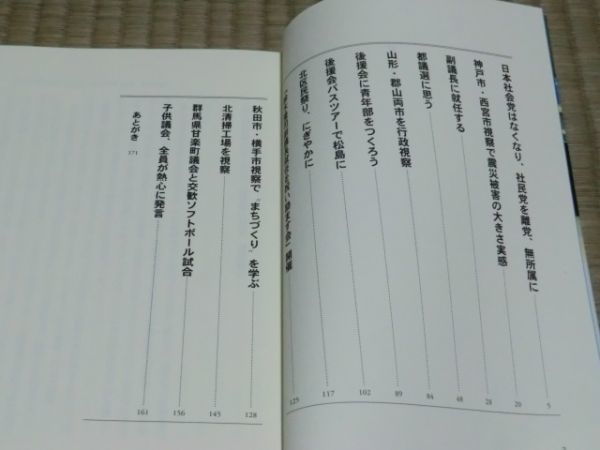 日本社会党はなくなり、社民党を離党、無所属に 5
神戸市・西宮市視察で震災被害の大きさ実感 20
副議長に就任する 28
都議選に思う 48
山形・郡山両市を行政視察 84
後援会に青年部をつくろう 89
後援会バスツアーで松島に 102
北区民祭り、にぎやかに 117
開催 125
秋田市・横手市視察で〝まちづくり〟を学ぶ 128
北清掃工場を視察 145
群馬県甘楽町議会と交歓ソフトボール試合 156
子供議会、全員が熱心に発言 161
あとがき 171